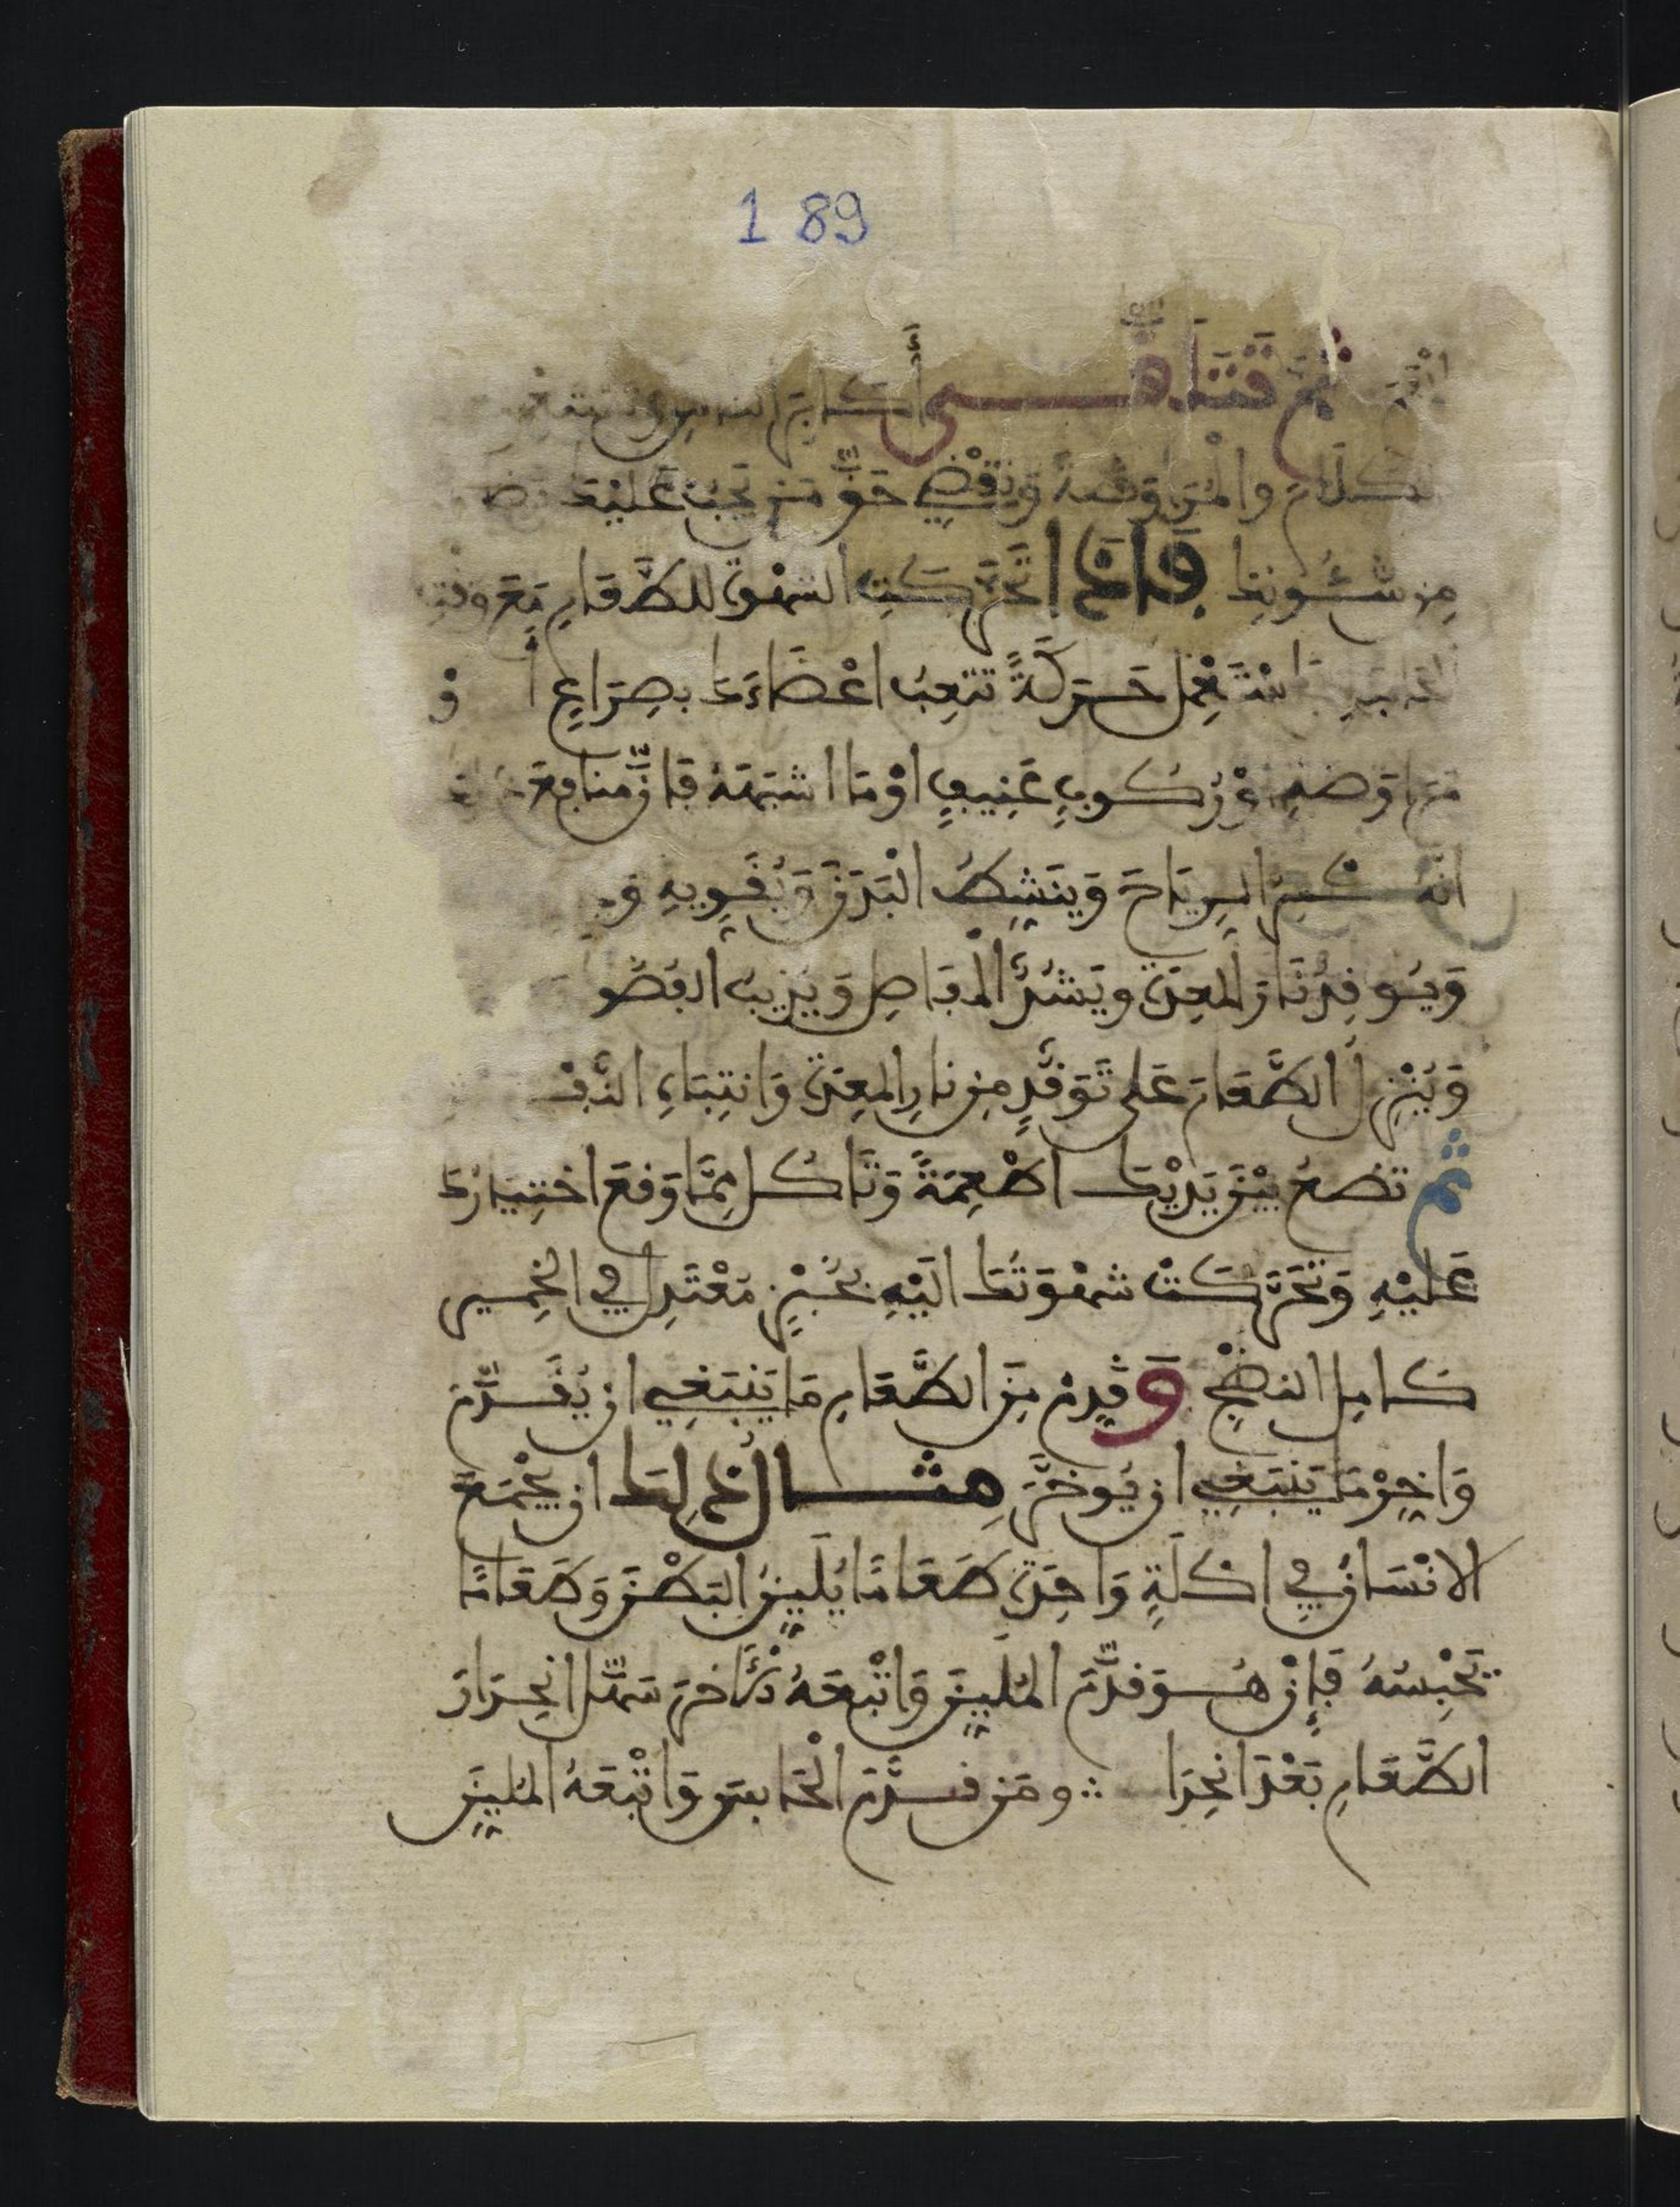 1 89
ثُمَّ أكابر الناس
كلام والمراوضة وتقضي حقَّ من يجب عليك
من شئونك فإذا تحركت الشهوة للطعام مع وقت
استعمل حركةً تتعب اعضاءك بصراعٍ أ و
ركوبٍ عنيفٍ أو ما اشبهه فإنّ منافع
انه يكسر الرياح وينشط البدن ويقويه و
ويوقد نار المعدة ويشد المفاصل ويذيب الفضو
وينزل الطعام على توقد من نار المعدة وانتباه النف
ثم تضع بين يديك اطعمةً وتأكل مما وقع اختيارك
عليه وتحركت شهوتك اليه بخبزٍ معتدل في الخمير
كامل النضج وقدم من الطعام ما ينبغي ان يقدّم
واخر ما ينبغي ان يوخر مثال ذلك ان يجمع
الانسان في اكلةٍ واحدة طعامًا يلين البطن وطعامًا
يحبسه فإن هو قدّم الملين واتبعه الآخر سهّل انحدار
الطعام بعد انحدا ومن قدّم الحابس واتبعه الملين